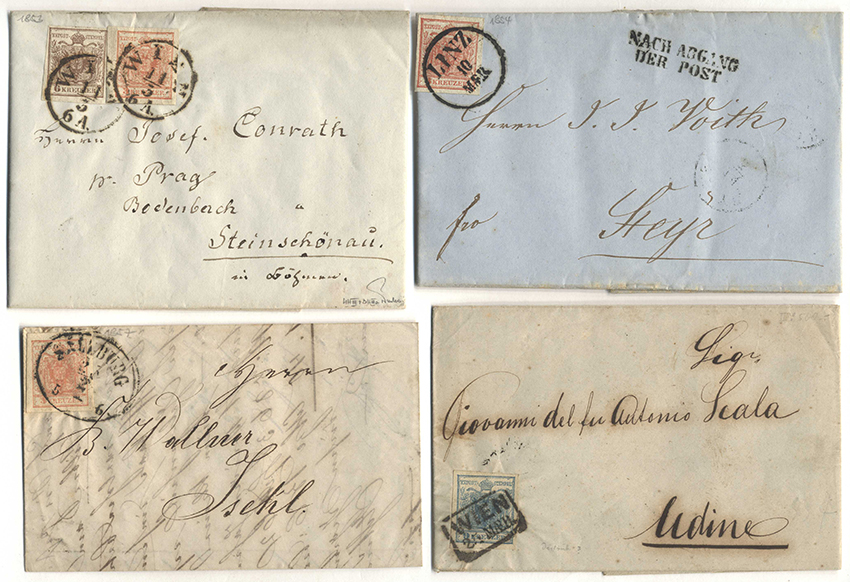 6 KREUZER
WIEN
6 A.
Herrn Josef Conrath
pr. Prag
Bodenbach "
Steinschönau.
in Böhmen.
1854
LINZ
10
MRK
NACH ABGANG
DER POST
Herrn J. J. Voith
fro Steyr
SALZBURG
Herrn
B. Wallner
Ischl.
Sigr
Giovanni del fu Antonio Scala
WIEN
Udine